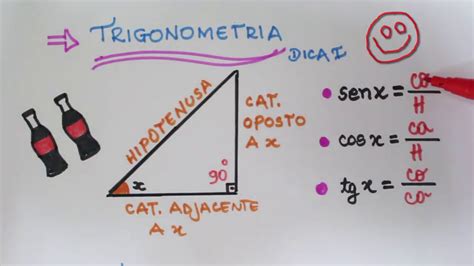 ⇒ TRIGONOMETRIA
DICA I
HIPOTENUSA
CAT.
OPOSTO
A x
90°
x
CAT. ADJACENTE
A x
• sen x = co/H
• cos x = ca/H
• tg x = co/ca